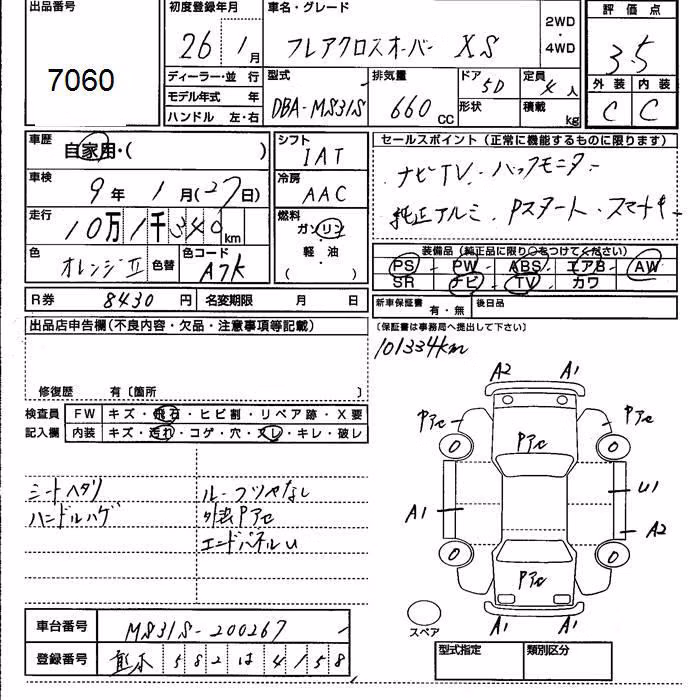 出品番号
7060
初度登録年月
26年1月
車名・グレード
フレアクロスオーバー XS
2WD・4WD
評価点
3.5
ディーラー・並 行
モデル年式 年
ハンドル 左・右
型式
DBA-MS31S
排気量
660cc
ドア
5D
形状
定員
4人
積載
kg
外装 内装
C C
車歴
自家用・( )
車検
9年1月(27日)
走行
10万1千340km
色
オレンジII
色替
色コード
A7K
シフト
IAT
冷房
AAC
燃料
ガソリン
軽・油
( )
セールスポイント(正常に機能するものに限ります)
ナビTV・バックモニター
純正アルミ・Pスタート・スマートキー
装備品(純正品に限り○をつけてください)
PS PW ABS エアB AW
SR ナビ TV カワ
R券 8430円 名変期限 月 日
新車保証書 有・無 後日品
(保証書は事務局へ提出して下さい)
101334km
出品店申告欄(不良内容・欠品・注意事項等記載)
修復歴 有〔箇所 〕
検査員 FW キズ・飛石・ヒビ割・リペア跡・X要
記入欄 内装 キズ・汚れ・コゲ・穴・スレ・キレ・破レ
シートヘタリ
ハンドルハゲ
ルーフツヤなし
外装Pアセ
エンドパネルU
A2 A1
Pアセ Pアセ Pアセ
0 0
A1 U1
A2
0 0
Pアセ
A1 A1
スペア
車台番号 MS31S-200267
登録番号 熊本 582 は 4158
型式指定 類別区分